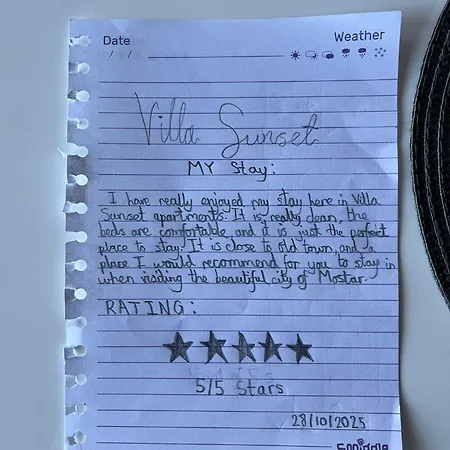 Date
Weather
/ /
Villa Sunset
MY Stay:
I have really enjoyed my stay here in Villa
Sunset apartments. It is really clean, the
beds are comfortable and it is just the perfect
place to stay. It is close to Old town, and a
place I would recommend for you to stay in
when visiting the beautiful city of Mostar.
RATING:
5/5 Stars
28/10/2025
Smiggle